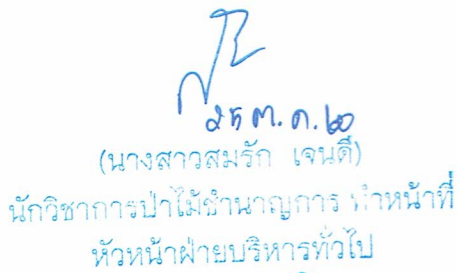 ๒๕ ต.ค. ๖๐
(นางสาวสมรัก เจนดี)
นักวิชาการป่าไม้ชำนาญการ ทำหน้าที่
หัวหน้าฝ่ายบริหารทั่วไป